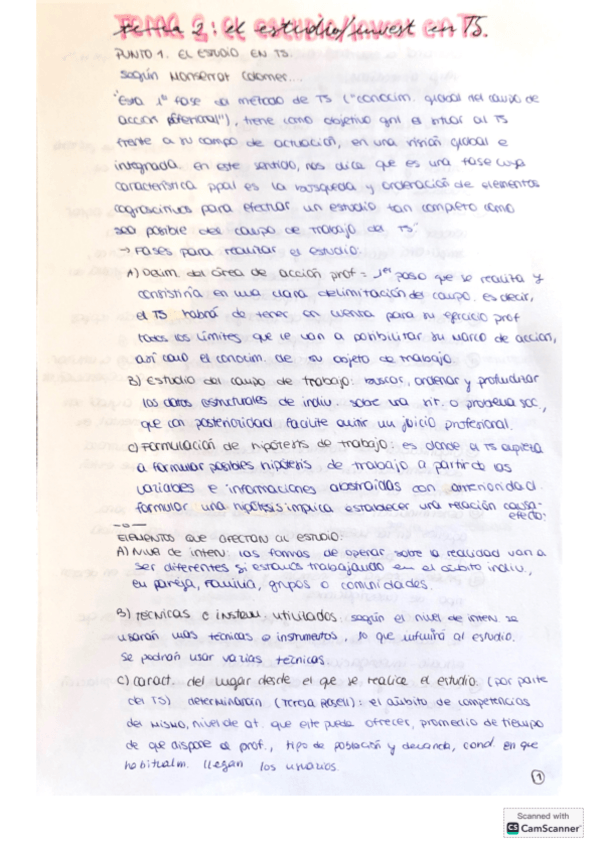 tema 2: el estudio/invest en TS.
PUNTO 1. EL ESTUDIO EN TS.
Según Monserrat Colomer...
"Esta 1ª fase del método de TS ("conocim. global del campo de
acción profesional"), tiene como objetivo gnl el situar al TS
frente a su campo de actuación, en una visión global e
integrada en este sentido, nos dice que es una fase cuya
característica ppal es la búsqueda y ordenación de elementos
cognoscitivos para efectuar un estudio tan completo como
sea posible del campo de trabajo del TS"
→ Fases para realizar el estudio:
A) Delim. del área de acción prof = 1er paso que se realiza y
consistiría en una clara delimitación del campo. es decir,
el TS habrá de tener en cuenta para su ejercicio prof
todos los límites que le van a posibilitar su marco de acción,
así como el conocim. de su objeto de trabajo.
B) Estudio del campo de trabajo: buscar, ordenar y profundizar
los datos estructurales de indiv. sobre una sit. o problema soc.,
que con posterioridad facilite emitir un juicio profesional.
C) Formulación de hipótesis de trabajo: es donde el TS empieza
a formular posibles hipótesis de trabajo a partir de las
variables e informaciones abstraidas con anterioridad.
formular una hipótesis implica establecer una relación causa-
efecto.
ELEMENTOS QUE AFECTAN AL ESTUDIO:
A) Nivel de interv: las formas de operar sobre la realidad van a
ser diferentes si estamos trabajando en el ámbito indiv.,
en pareja, familia, grupos o comunidades.
B) Técnicas e instrum. utilizados: según el nivel de interv. se
usarán unas técnicas e instrumentos, lo que influirá al estudio.
Se podrán usar varias técnicas.
C) Caract. del lugar desde el que se realice el estudio: (por parte
del TS) determinarán (Teresa Rosell): el ámbito de competencias
del mismo, nivel de at. que este puede ofrecer, promedio de tiempo
de que dispone el prof., tipo de población y demanda, cond. en que
habitualm. llegan los usuarios.
1
Scanned with
CS CamScanner